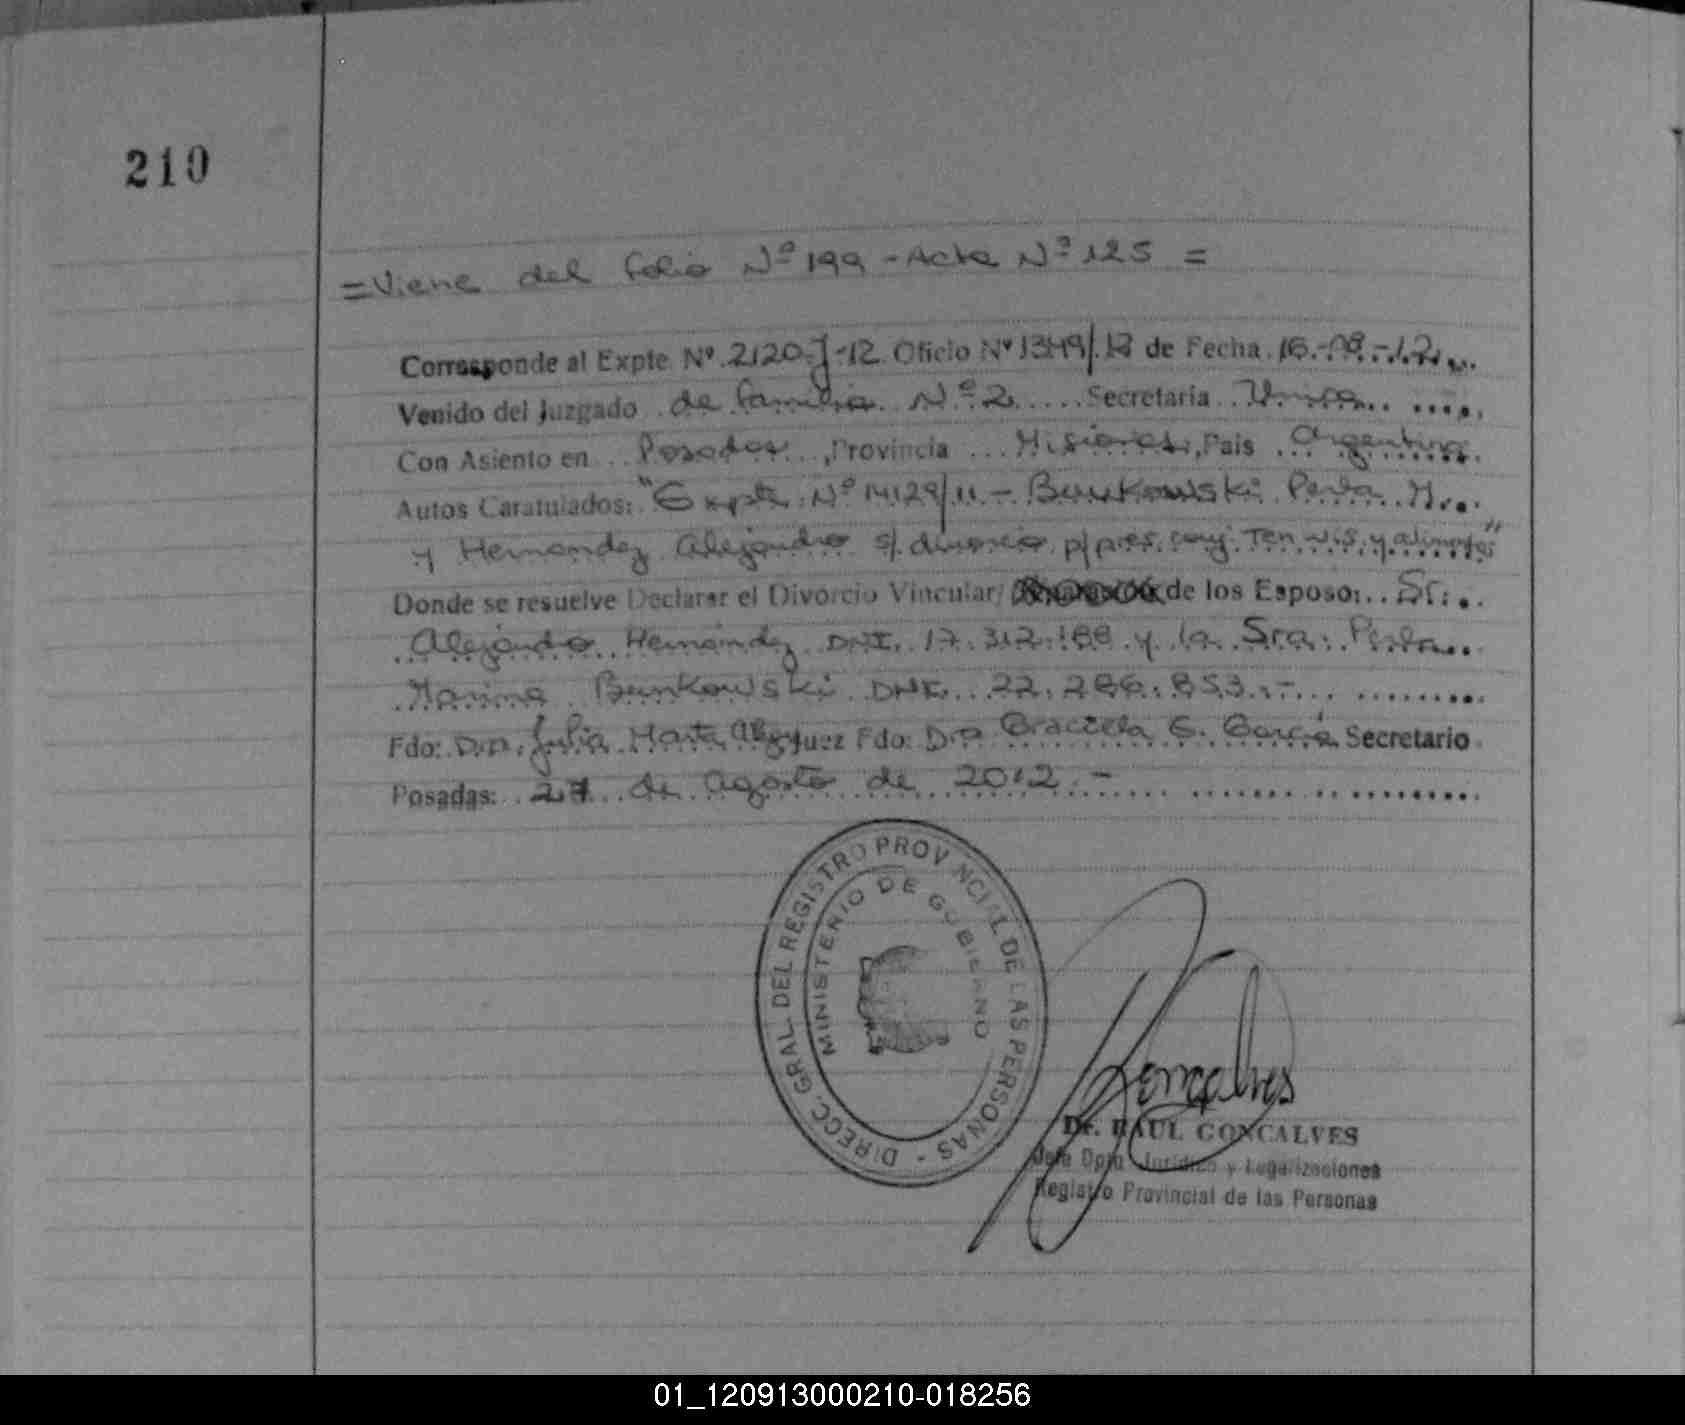 210
= Viene del folio Nº 199 - Acta Nº 125 =
Corresponde al Expte. Nº 2120-J-12 Oficio Nº 1349/12 de Fecha 16-08-12
Venido del Juzgado de familia Nº 2 Secretaria Unica
Con Asiento en Posadas, Provincia Misiones, País Argentina
Autos Caratulados: "Expte. Nº 14129/11 - Bunkowski Perla M.
y Hernandez Alejandro s/ divorcio p/ pres. conj. Ten. vis. y alimentos"
Donde se resuelve Declarar el Divorcio Vincular/ de los Esposo: Sr.
Alejandro Hernández DNI. 17.312.188 y la Sra. Perla
Marina Bunkowski DNI. 22.286.853.-
Fdo: Dra. Julia Marta Juez Fdo: Dra Graciela G. García Secretario
Posadas: 27 de agosto de 2012.-
DIRECC. GRAL. DEL REGISTRO PROVINCIAL DE LAS PERSONAS -
MINISTERIO DE GOBIERNO
Goncalves
Dr. RAUL GONCALVES
Jefe Dpto Jurídico y Legalizaciones
Registro Provincial de las Personas
01_120913000210-018256